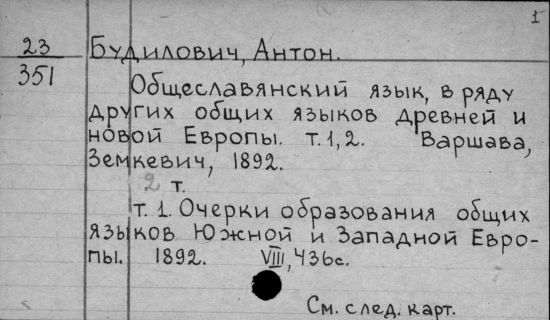 1
23
351
Будилович, Антон.
Общеславянский язык, в ряду
других общих языков древней и
новой Европы. т. 1, 2. Варшава,
Земкевич, 1892.
2 т.
т. 1. Очерки образования общих
языков Южной и Западной Евро-
пы. 1892. VIII, 436с.
См. след. карт.